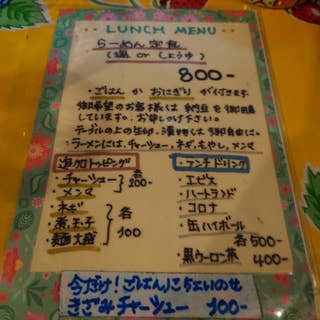 LUNCH MENU
らーめん定食
(塩 or しょうゆ)
800-
・ごはん か おにぎり が付きます。
御希望のお客様は 納豆を御用意
しています。お申し付け下さい。
テーブルの上の生卵、漬物は
ラーメンには、チャーシュー、ネギ、もやし、メンマ
追加トッピング
・チャーシュー
・メンマ
各200-
・ネギ
・煮玉子
・麺大盛
各100
・ランチドリンク
・エビス
・ハートランド
・コロナ
・缶ハイボール
各500-
・黒ウーロン茶 400-
今だけ!ごはんにちょいのせ
きざみチャーシュー 100-